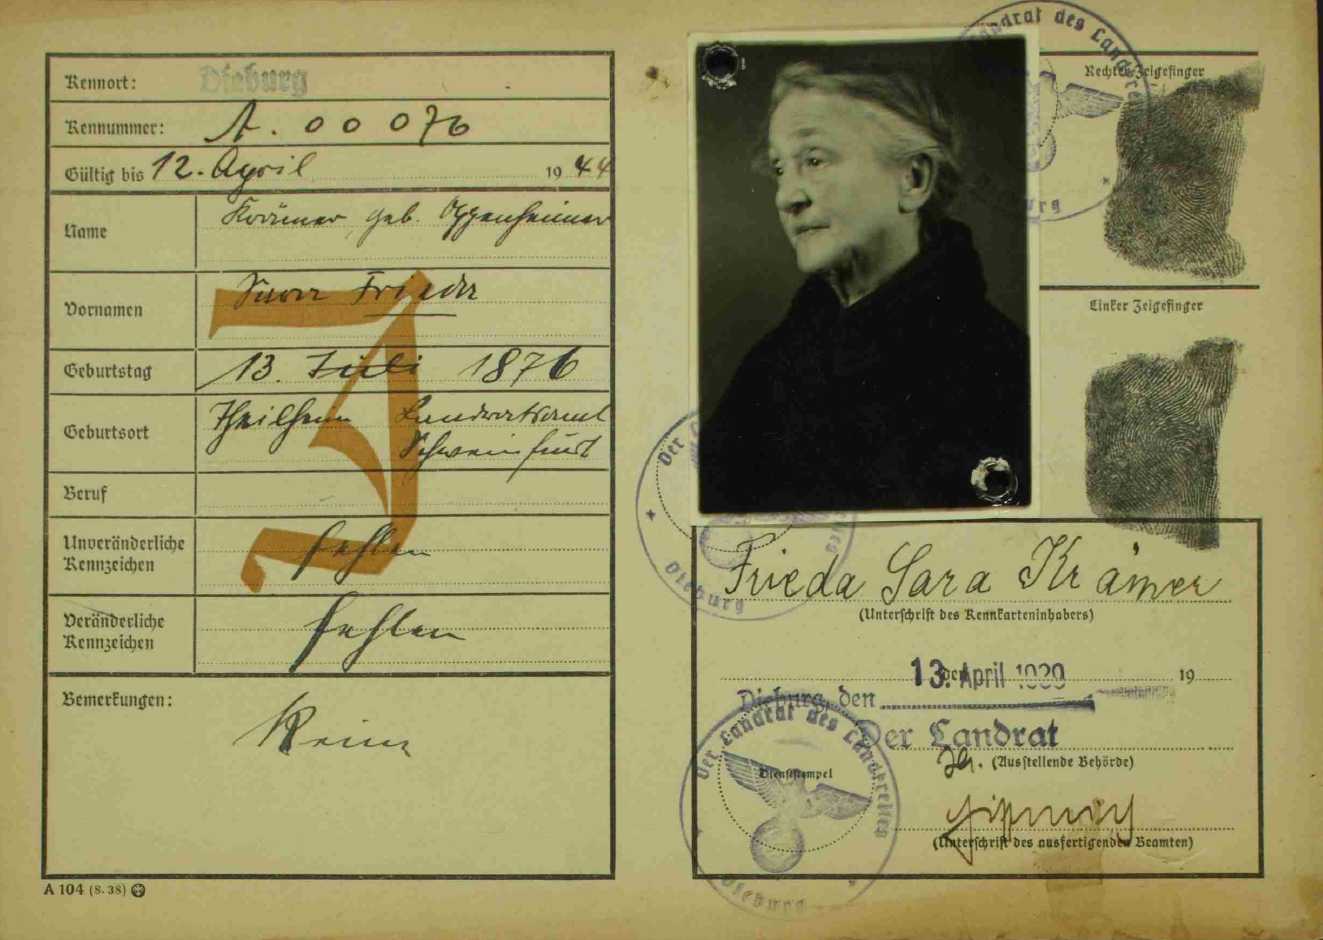 Kennort: Dieburg
Kennummer: A. 00076
Gültig bis 12. April 1944
Name Krämer geb. Oppenheimer
Vornamen Sara Frieda
Geburtstag 13. Juli 1876
Geburtsort Theilheim Landratsamt
Schweinfurt
Beruf
Unveränderliche
Kennzeichen fehlen
Veränderliche
Kennzeichen fehlen
Bemerkungen:
Keine
J
A 104 (8. 38)
Der Landrat des Landkreises
Dieburg
Rechter Zeigefinger
Linker Zeigefinger
Der
Dieburg
Frieda Sara Krämer
(Unterschrift des Kennkarteninhabers)
13. April 1939 19
Dieburg, den
Der Landrat
(Ausstellende Behörde)
Dienststempel
Der Landrat des Landkreises
Dieburg
(Unterschrift des ausfertigenden Beamten)